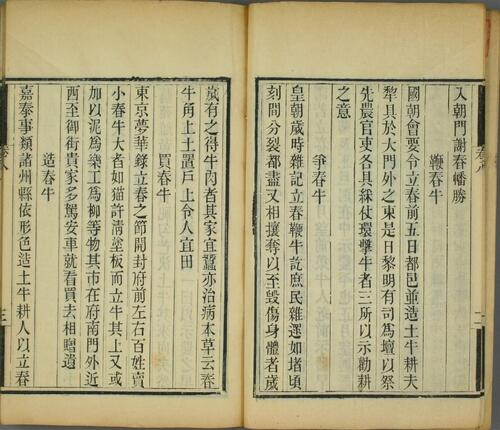 入朝門謝春幡勝
鞭春牛
國朝會要令立春前五日都邑並造土牛耕夫
犂具於大門外之東是日黎明有司爲壇以祭
先農官吏各具綵仗環擊牛者三所以示勸耕
之意
爭春牛
皇朝歲時雜記立春鞭牛訖庶民雜遝如堵頃
刻間分裂都盡又相攘奪以至毀傷身體者歲
歲有之得牛肉者其家宜蠶亦治病本草云春
牛角上土置戶上令人宜田
買春牛
東京夢華錄立春之節開封府前左右百姓賣
小春牛大者如猫許淸塗板而立牛其上又或
加以泥爲樂工爲柳等物其市在府南門外近
西至御街貴家多駕安車就看買去相贈遺
造春牛
嘉泰事類諸州縣依形色造土牛耕人以立春
卷八
三
卷八
二